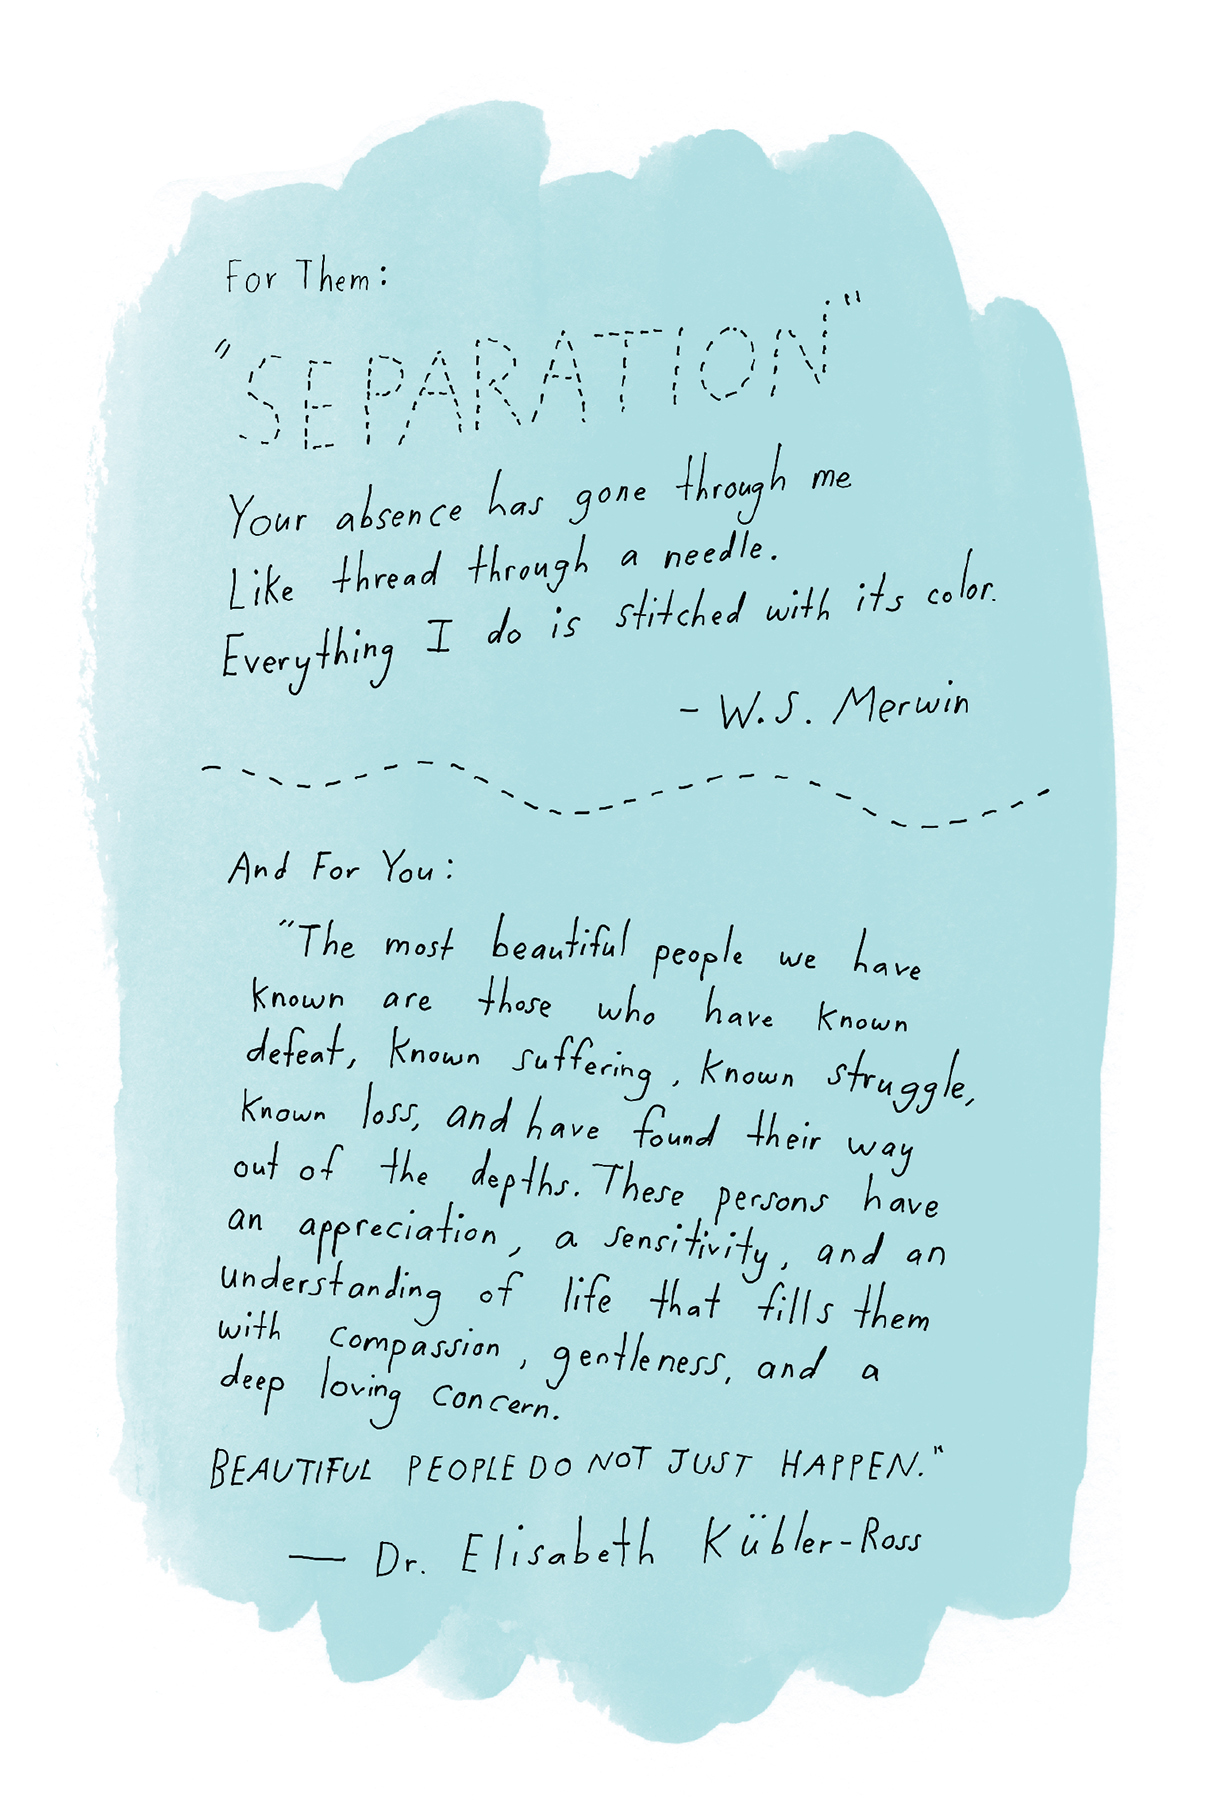 For Them:
"SEPARATION"
Your absence has gone through me
Like thread through a needle.
Everything I do is stitched with its color.
- W.S. Merwin
And For You:
"The most beautiful people we have
known are those who have known
defeat, known suffering, known struggle,
known loss, and have found their way
out of the depths. These persons have
an appreciation, a sensitivity, and an
understanding of life that fills them
with compassion, gentleness, and a
deep loving concern.
BEAUTIFUL PEOPLE DO NOT JUST HAPPEN."
— Dr. Elisabeth Kübler-Ross